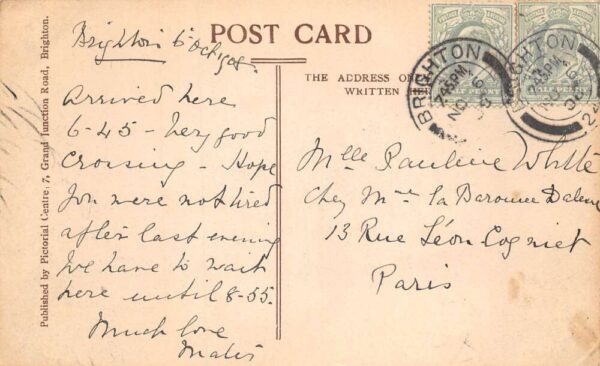 POST CARD
Brighton 6 Oct 1908.
THE ADDRESS ON
WRITTEN HER
Arrived here
6-45 - Very good
crossing - Hope
you were not tired
after last evening
We have to wait
here until 8-55.
Much love
Mlle Pauline White
Chez Mme la Baronne
13 Rue Léon Cogniet
Paris
Published by Pictorial Centre; 7, Grand Junction Road, Brighton.
BRIGHTON
7.45 PM
OC 6
HALF PENNY
BRIGHTON
HALF PENNY